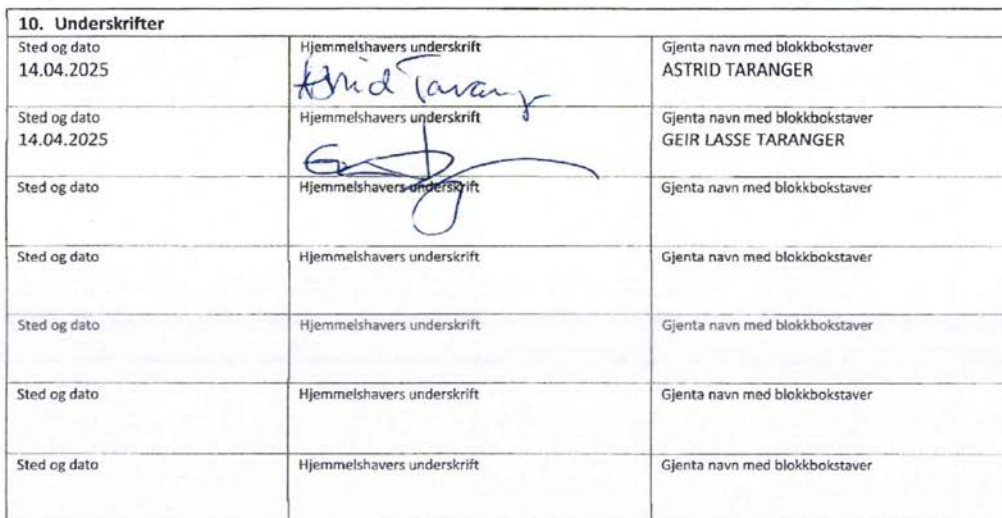 10. Underskrifter
Sted og dato Hjemmelshavers underskrift Gjenta navn med blokkbokstaver
14.04.2025 Astrid Taranger ASTRID TARANGER
Sted og dato Hjemmelshavers underskrift Gjenta navn med blokkbokstaver
14.04.2025 GEIR LASSE TARANGER
Sted og dato Hjemmelshavers underskrift Gjenta navn med blokkbokstaver
Sted og dato Hjemmelshavers underskrift Gjenta navn med blokkbokstaver
Sted og dato Hjemmelshavers underskrift Gjenta navn med blokkbokstaver
Sted og dato Hjemmelshavers underskrift Gjenta navn med blokkbokstaver
Sted og dato Hjemmelshavers underskrift Gjenta navn med blokkbokstaver